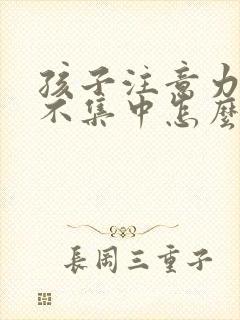 孩子注意力
不集中怎麼
長岡三重子